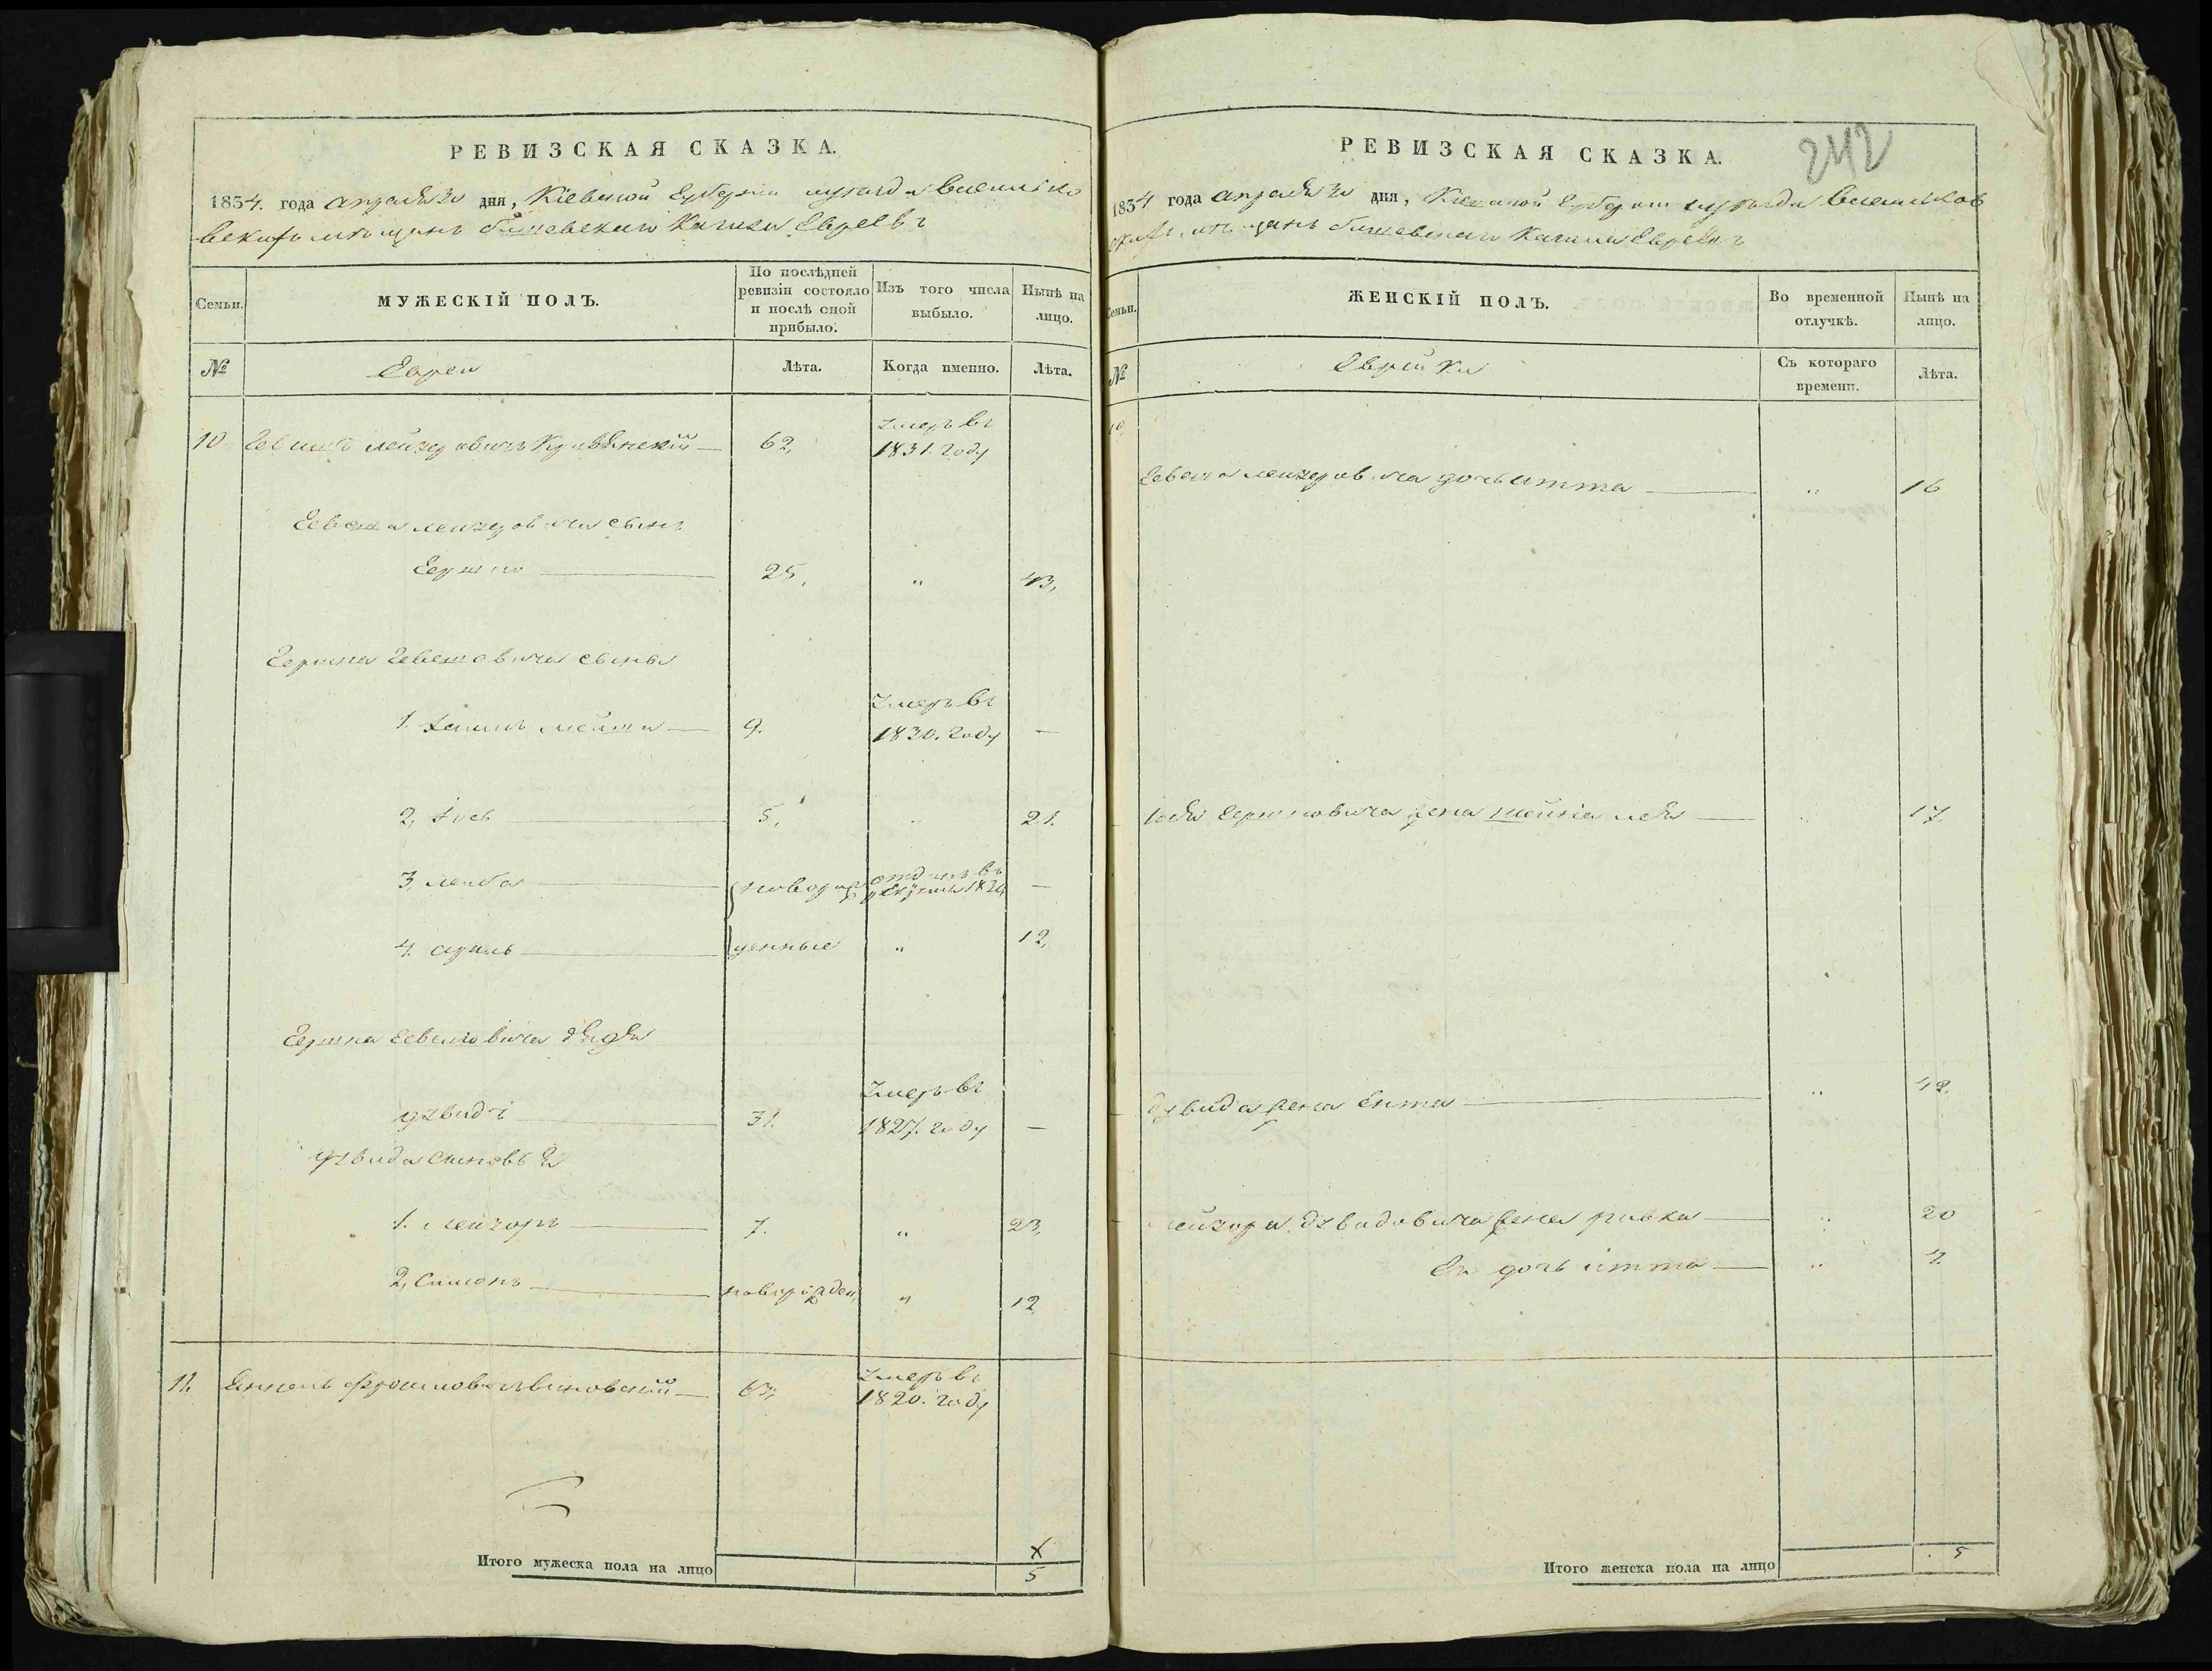 РЕВИЗСКАЯ СКАЗКА.
1834. года апреля 30 дня, Кіевской Губерніи города Василько
вскихъ мѣщанъ Кагала Евреевъ
Семьи.
МУЖЕСКІЙ ПОЛЪ.
По послѣдней ревизіи состояло и послѣ оной прибыло.
Изъ того числа выбыло.
Нынѣ на лицо.
№
Евреи
Лѣта.
Когда именно.
Лѣта.
10 Гевшъ Лейзеровичъ 62,
умеръ въ
1831. году
Гевша Лейзеровича сынъ
Гершко 25, " 43,
Гершка Гевшовича сыны
умеръ въ
1. 9. 1830. году —
2, Іось 5, " 21.
3, Лейба новорож отданъ въ рекруты —
4. Сруль денные " 12,
Гершка Гевшовича дядя
умеръ въ
Дувидъ 31. 1827. году —
Дувида сыновья
1. Лейзоръ 7. " 23,
2, Симонъ новорожден, " 12
11. 63, умеръ въ
1820. году
Итого мужеска пола на лицо
х
5
РЕВИЗСКАЯ СКАЗКА.
242
1834 года апреля 30 дня, Кіевской Губерніи города Васильков
скихъ мѣщанъ Кагала Евреевъ
Семьи.
ЖЕНСКІЙ ПОЛЪ.
Во временной отлучкѣ.
Нынѣ на лицо.
№
Еврейки
Съ котораго времени.
Лѣта.
10
Гевша Лейзеровича дочь Итта " 16
Іося Гершковича жена Шейна Лея " 17.
Дувида жена Ента " 42.
Лейзора Дувидовича жена Ривка " 20
Ея дочь Итта "
Итого женска пола на лицо 5